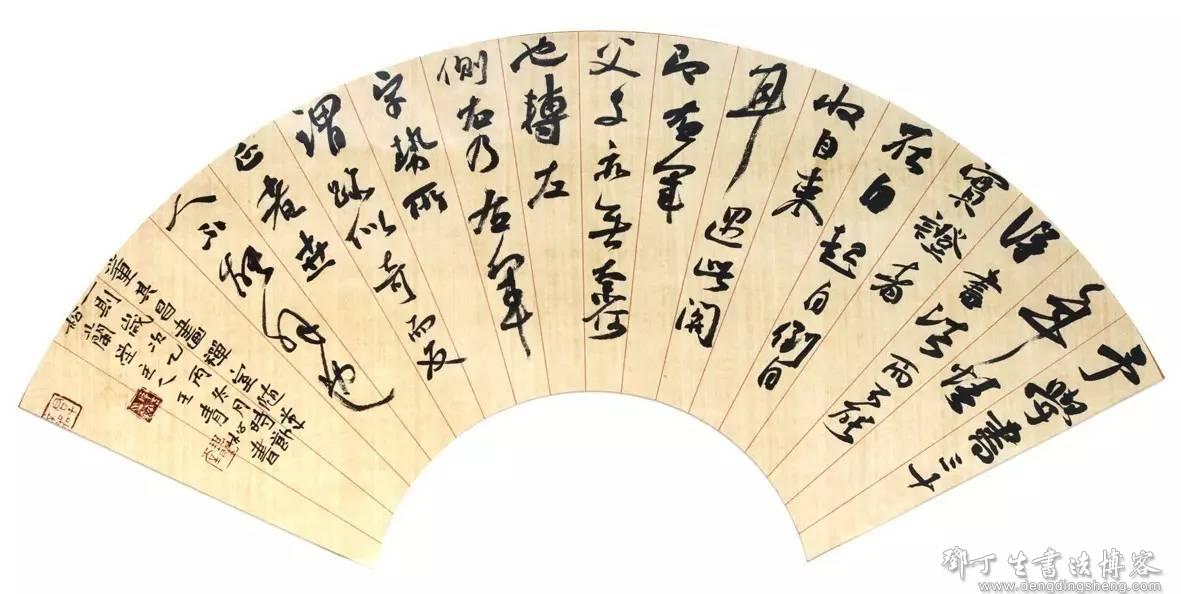 予學書三十
年悟
得書法而不能
實證者
在自起自倒自
收自束
耳過此關
即右軍
父子亦無奈何
也轉左
側右乃右軍
字勢所
謂跡似奇而反
正者世
人不能解也
董其昌畫禪室隨筆
一則歲次
蘭堂主人
鄧丁生书法博客
www.dengdingsheng.com